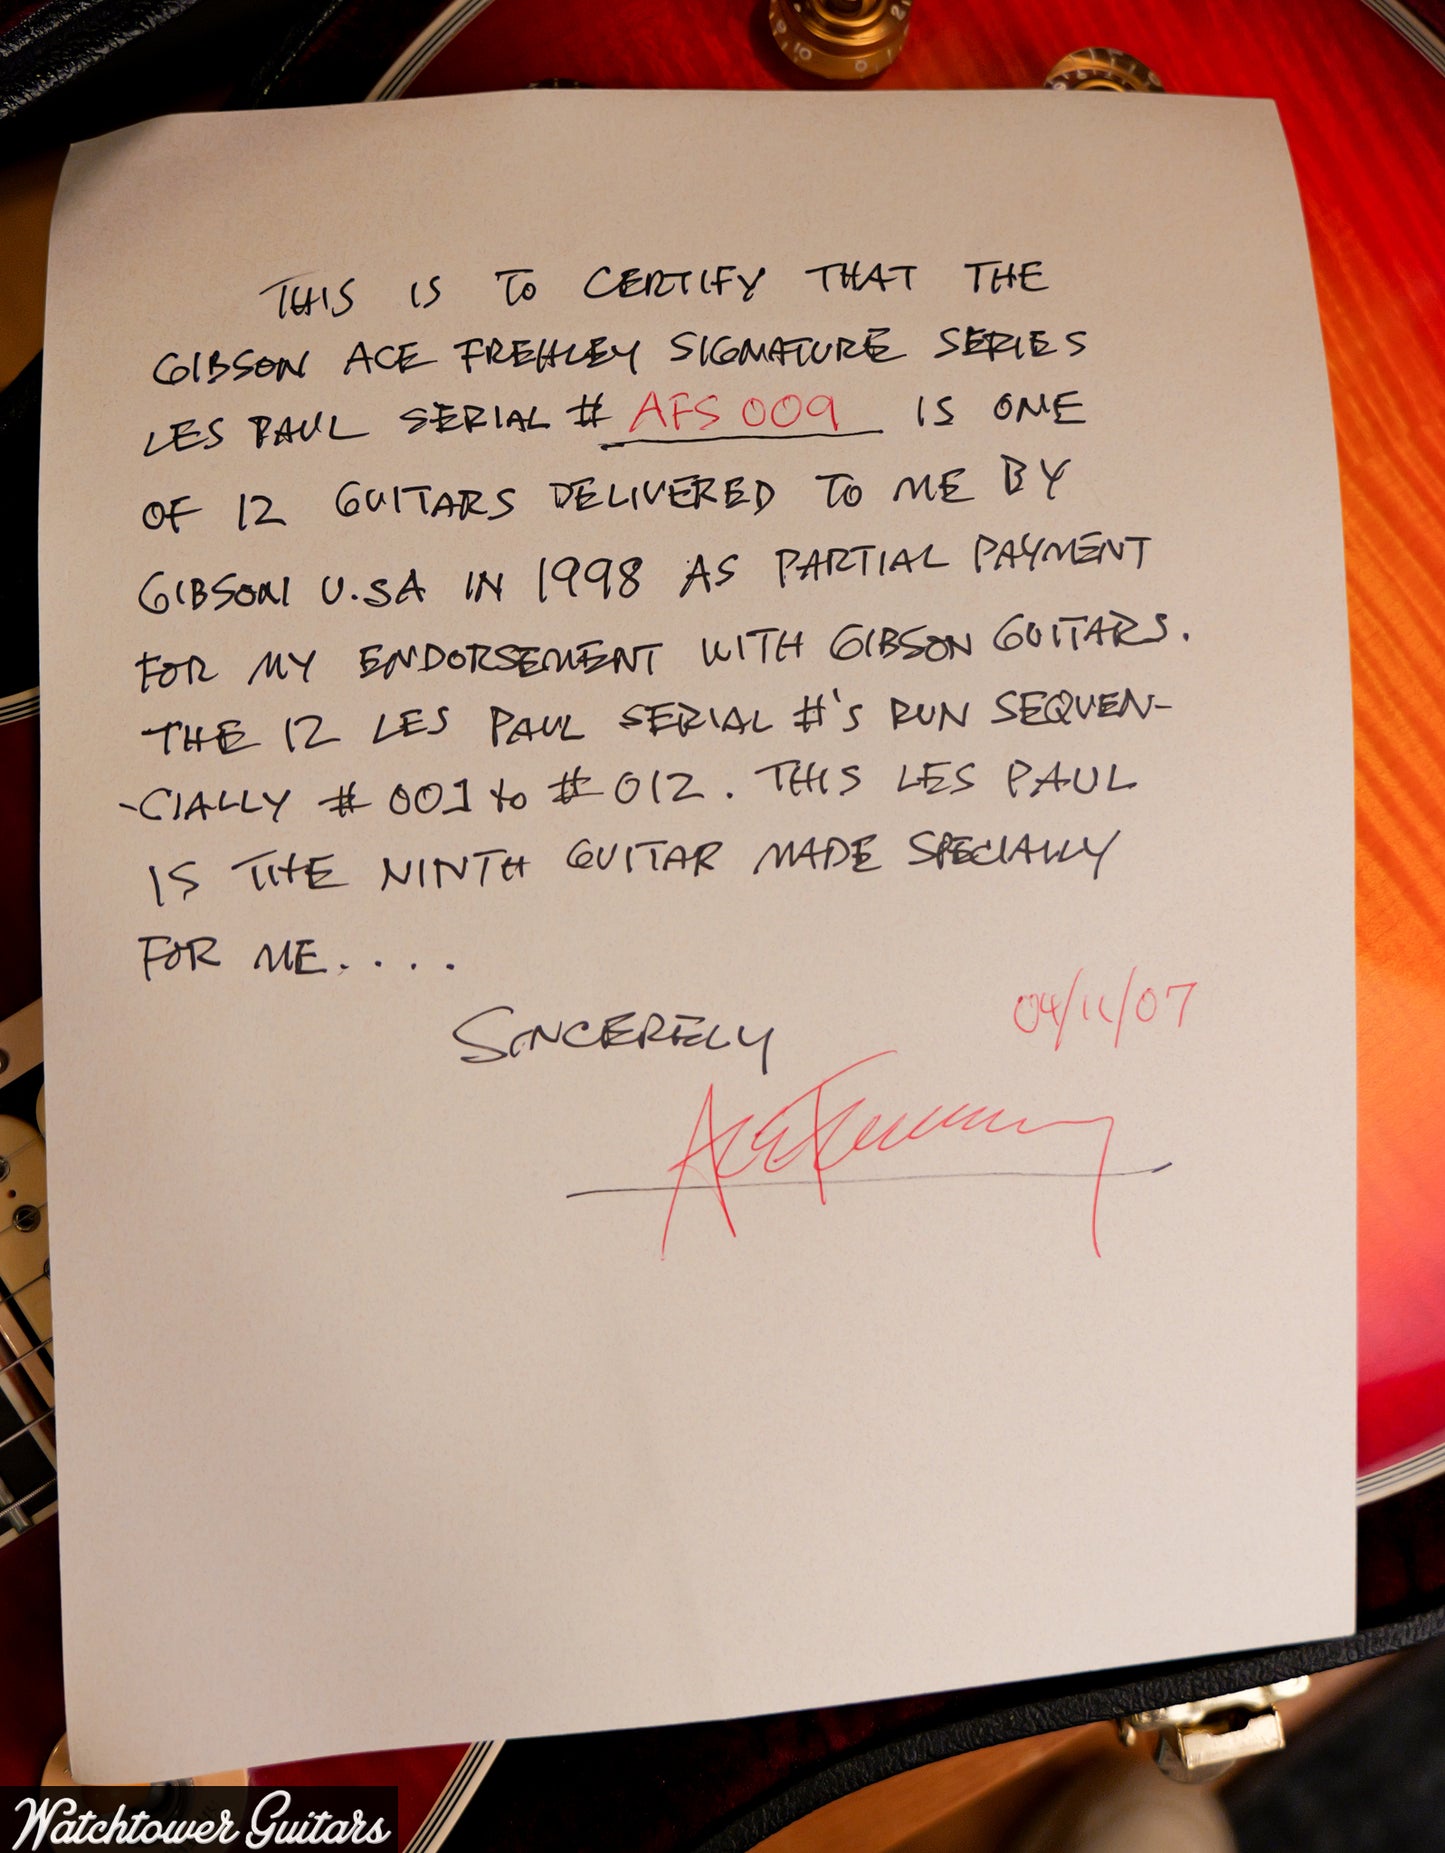 THIS IS TO CERTIFY THAT THE
GIBSON ACE FREHLEY SIGNATURE SERIES
LES PAUL SERIAL # AFS 009 IS ONE
OF 12 GUITARS DELIVERED TO ME BY
GIBSON U.SA IN 1998 AS PARTIAL PAYMENT
FOR MY ENDORSEMENT WITH GIBSON GUITARS.
THE 12 LES PAUL SERIAL #'S RUN SEQUEN-
-CIALLY # 001 to # 012. THIS LES PAUL
IS THE NINTH GUITAR MADE SPECIALLY
FOR ME....
SINCERELY
04/11/07
Ace Frehley
Watchtower Guitars